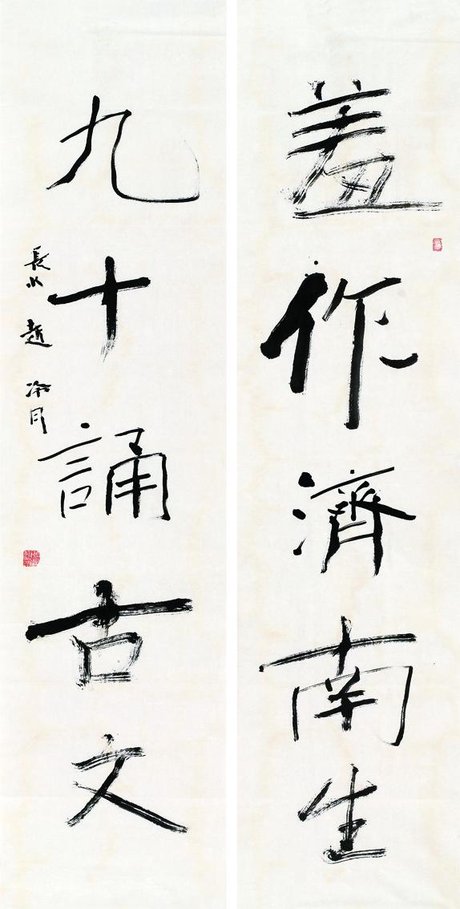 羞作濟南生
九十誦古文
長水 趙冷月